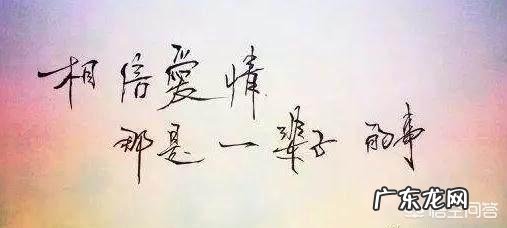 相信愛情
那是一輩子的事
广东龙网
悟空问答